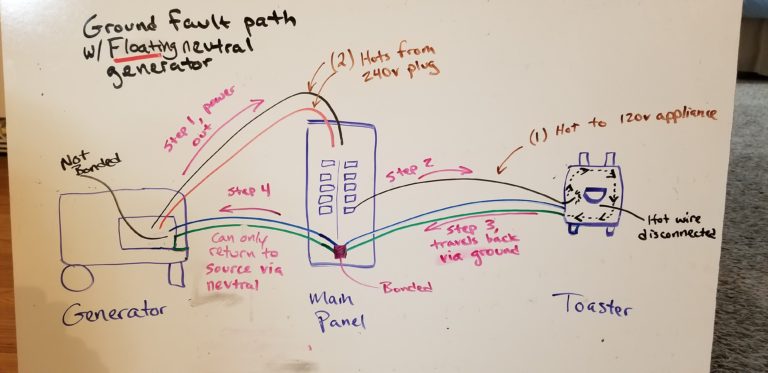 Ground fault path
w/ Floating neutral
generator
(2) Hots from
240v plug
Step 1, power
out
(1) Hot to 120v appliance
Not
Bonded
Step 2
Step 4
Hot wire
disconnected
Can only
return to
source via
neutral
Step 3,
travels back
via ground
Bonded
Generator
Main
Panel
Toaster